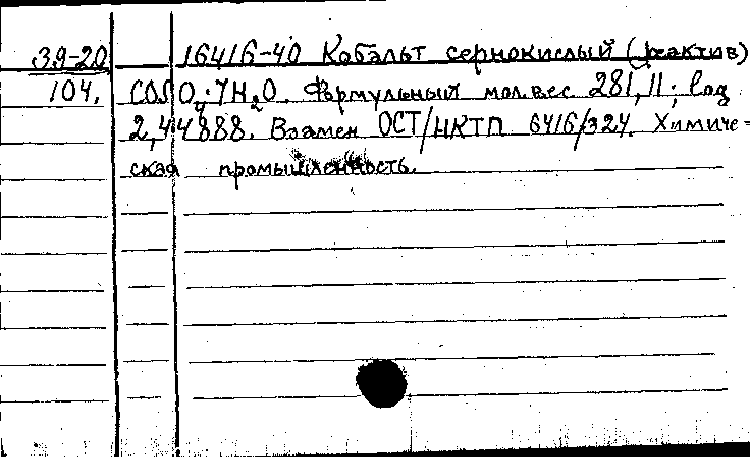 39-20 16416-40 Кобальт сернокислый (реактив)
104. COSO4·7H2O. Формульный мол.вес 281,11; log
2,44888. Взамен ОСТ/НКТП 6416/324. Химиче-
ская промышленность.